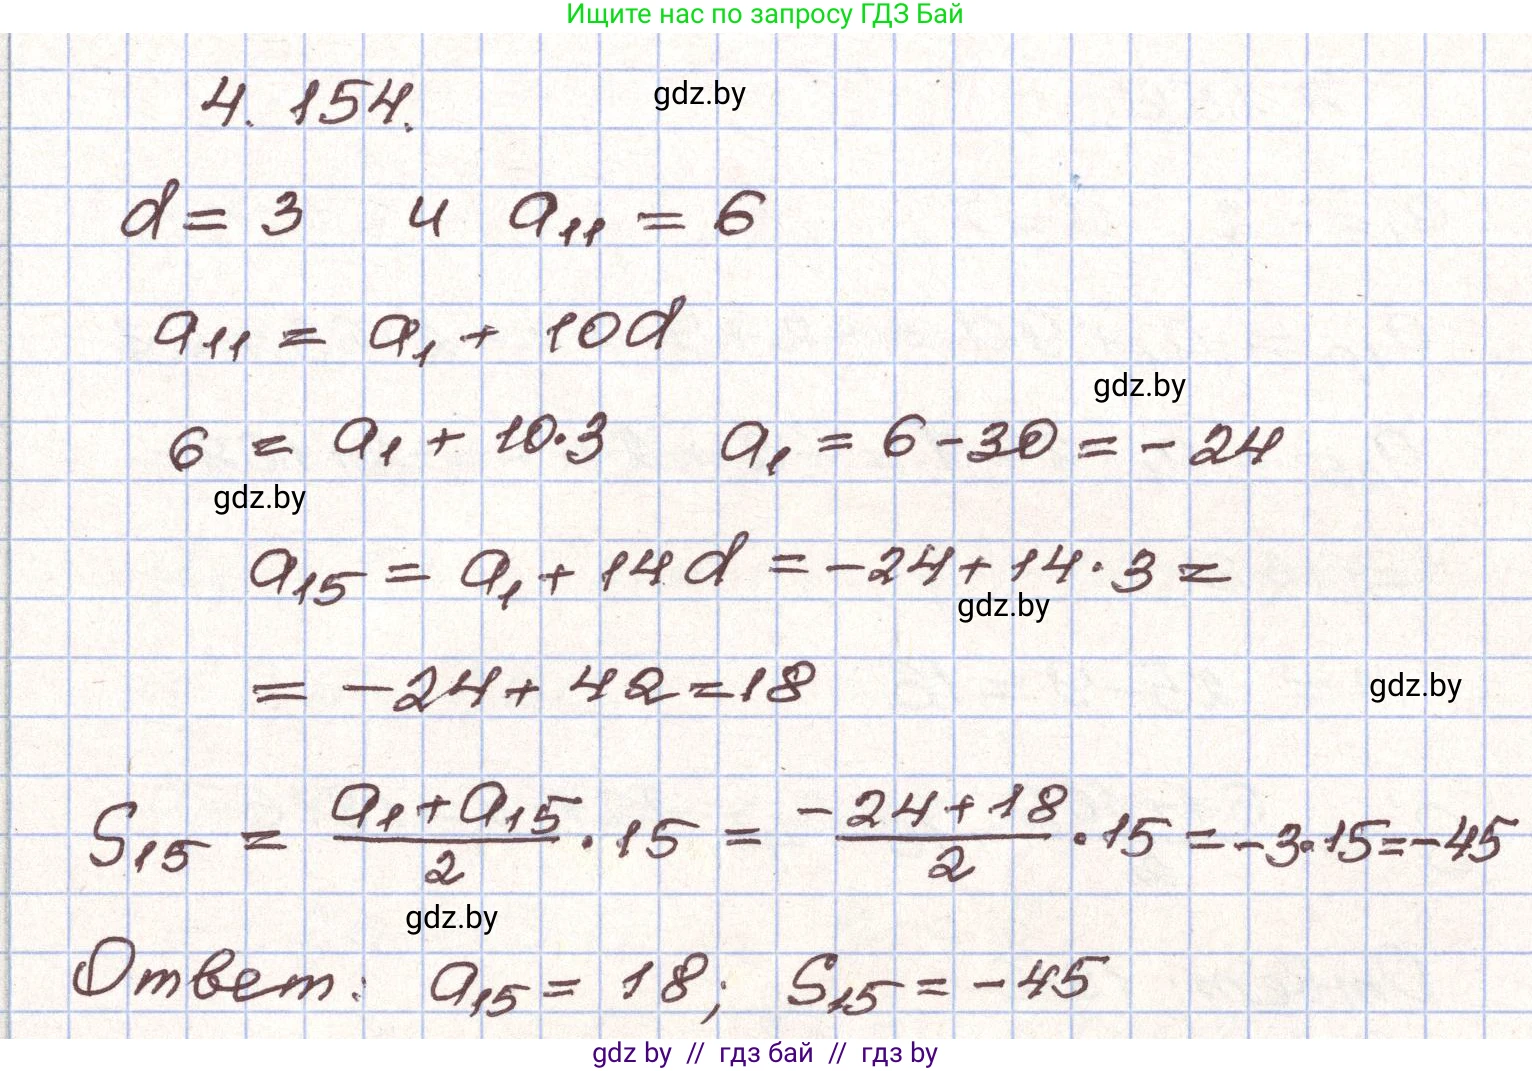 Ищите нас по запросу ГДЗ Бай
4. 154.
gdz.by
d = 3 и a₁₁ = 6
a₁₁ = a₁ + 10d
gdz.by
6 = a₁ + 10·3 a₁ = 6 - 30 = - 24
gdz.by
a₁₅ = a₁ + 14d = -24 + 14·3 =
gdz.by
= -24 + 42 = 18
gdz.by
S₁₅ = (a₁ + a₁₅)/2 · 15 = (-24 + 18)/2 · 15 = -3·15 = -45
gdz.by
Ответ: a₁₅ = 18; S₁₅ = -45
gdz by // гдз бай // гдз by